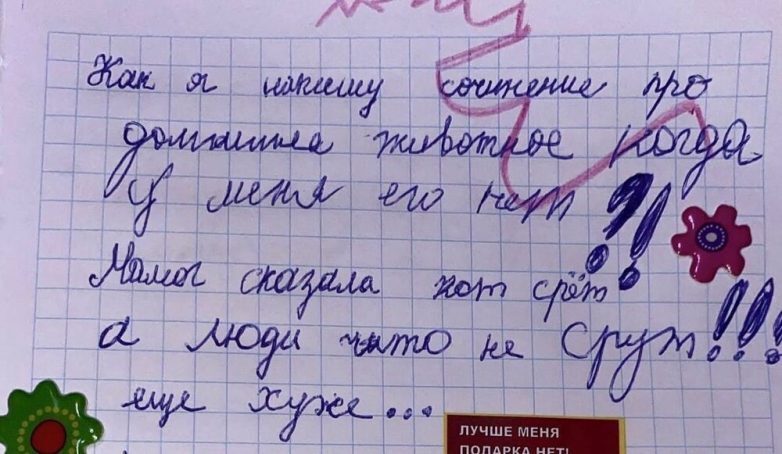 Как я напишу сочинение про
домашнеа животное когда
у меня его нет?!
Мамог сказала кот срёт
а люди чито не срут!!!
еще хуже...
ЛУЧШЕ МЕНЯ
ПОДАРКА НЕТ!